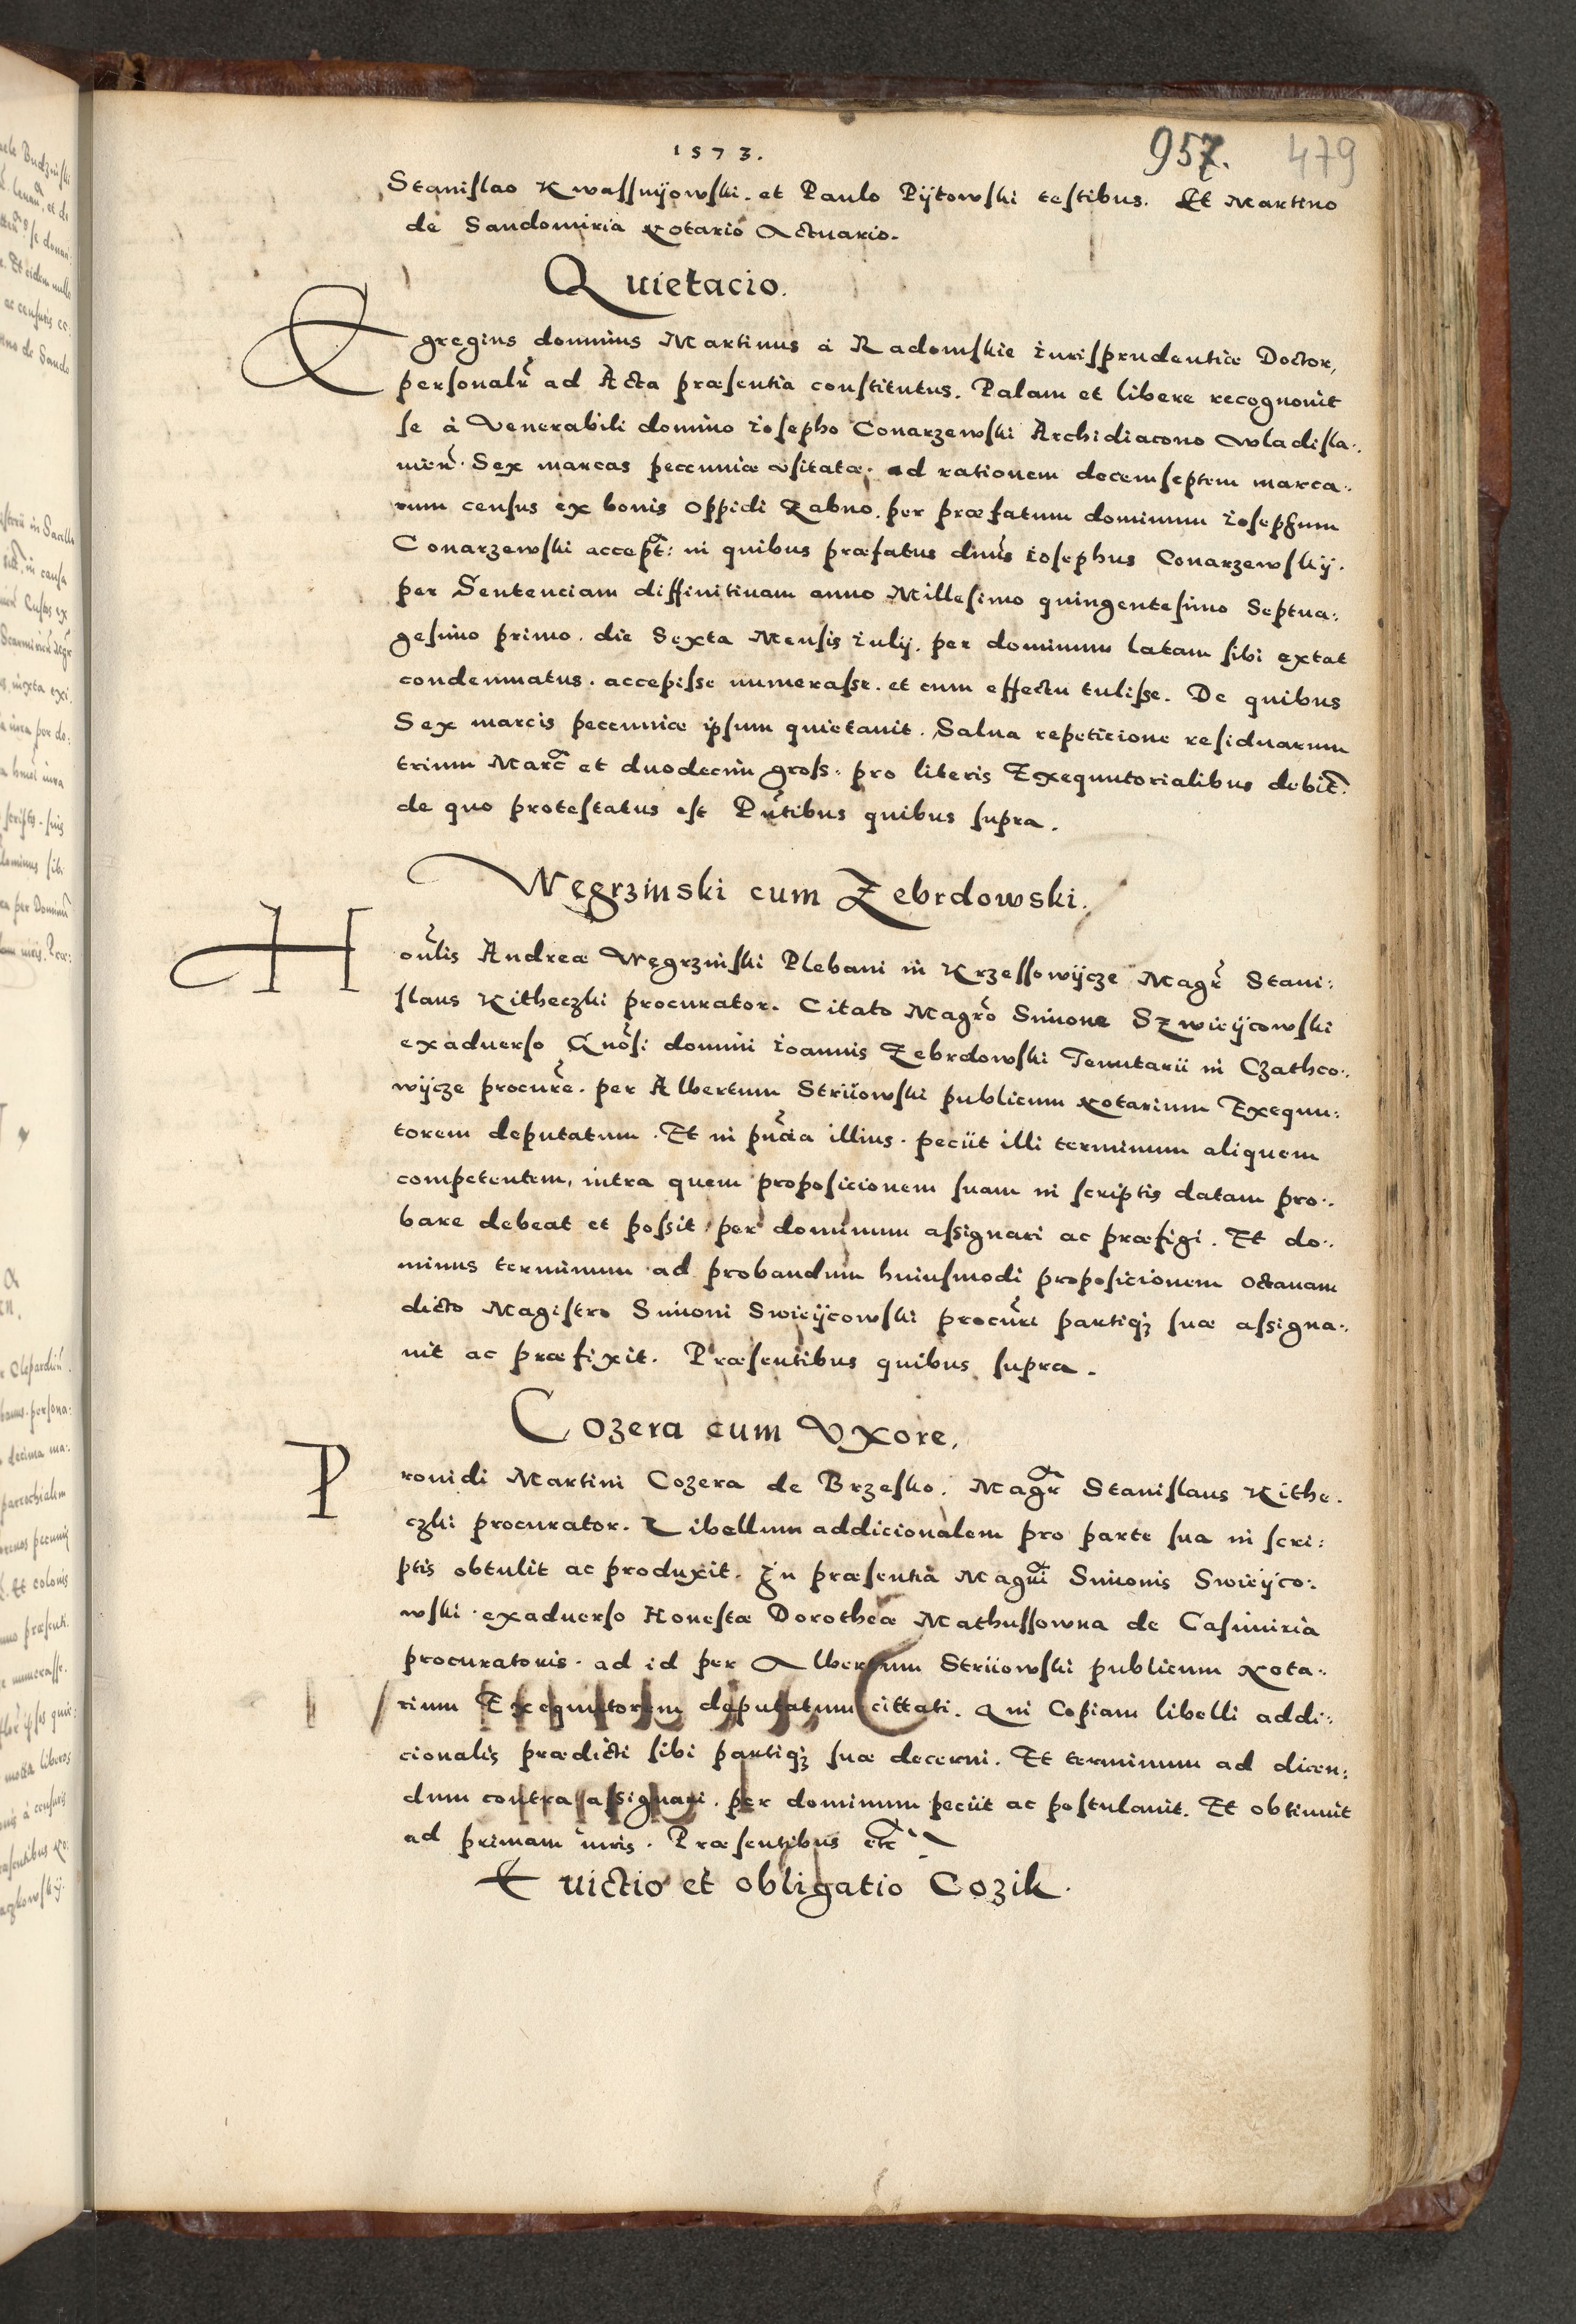 1573.
957. 479
Stanislao Kwassnÿowski. et Paulo Pÿtowski testibus. Et Martino
de Sandomiria Notario Actuario.
Quietacio.
Egregius dominus Martinus à Radomskie Iurisprudentiæ Doctor,
personalr̃ ad Acta præsentia constitutus. Palam et libere recognouit
se à Venerabili domino Iosepho Conarzewski Archidiacono Wladisla:
uien̄. Sex marcas pecunniæ vsitatæ. ad rationem decemseptem marca:
rum census ex bonis oppidi Zabno. per præfatum dominum Iosephum
Conarzewski accept̃: in quibus præfatus dn̄us Iosephus Conarzewskÿ.
per Sentenciam diffinitiuam anno Millesimo quingentesimo Septua:
gesimo primo. die Sexta Mensis Iulÿ. per dominum latam sibi extat
condemnatus. accepisse numerasse. et cum effectu tulisse. De quibus
Sex marcis pecunniæ ipsum quietauit. Salua repeticione residuarum
trium Marc̃ et duodecim gross. pro literis Exequutorialibus debit̃.
de quo protestatus est Pñtibus quibus supra.
Węgrzinski cum Zebrdowski.
Honr̃lis Andreæ Węgrzinski Plebani in Krzessowÿcze Magr̃ Stani:
slaus Kitheczki procurator. Citato Magr̃o Simone Szwieÿcowski
exaduerso Gnõsi domini Ioannis Zebrdowski Tenutarii in Czathco:
wÿcze procurẽ. per Albertum Striiowski publicum Notarium Exequu:
torem deputatum. Et in pñcia illius. peciit illi terminum aliquem
competentem, intra quem proposicionem suam in scriptis datam pro:
bare debeat et possit per dominum assignari ac præfigi. Et do:
minus terminum ad probandum huiusmodi proposicionem octauam
dicto Magistro Simoni Swieÿcowski procũri partiq₃ suæ assigna:
uit ac præfixit. Præsentibus quibus supra.
Cozera cum Vxore,
Prouidi Martini Cozera de Brzesko. Magr̃ Stanislaus Kithe.
czki procurator. Libellum addicionalem pro parte sua in scri:
ptis obtulit ac produxit. In præsentia Magr̃i Simonis Swieÿco:
wski exaduerso Honestæ Dorotheæ Mathussowna de Casimiria
procuratoris. ad id per Albertum Striiowski publicum Nota:
rium Exequutorem deputatum cittati. Qui Copiam libelli addi:
cionalis prædicti sibi partiq₃ suæ decerni. Et terminum ad dicen:
dum contra assignari. per dominum peciit ac postulauit. Et obtinuit
ad primam iuris. Præsentibus etc̃
Euictio et obligatio Cozik.